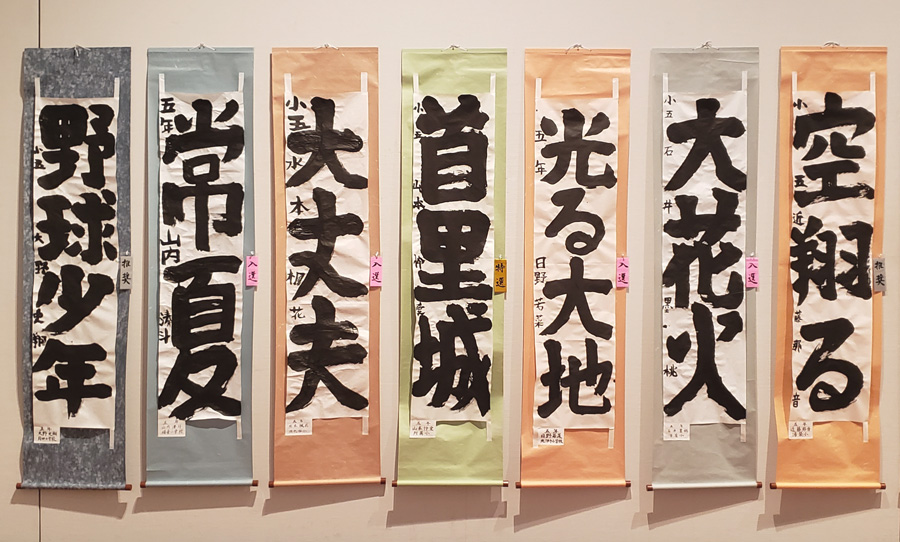 野球少年
推奨
常夏
五年 山内
入選
大丈夫
小五 水本 花
入選
首里城
小五 山本
特選
光る大地
五年 日野 若菜
入選
大花火
小五 石井 桃
入選
空翔る
小五 近 音
推奨